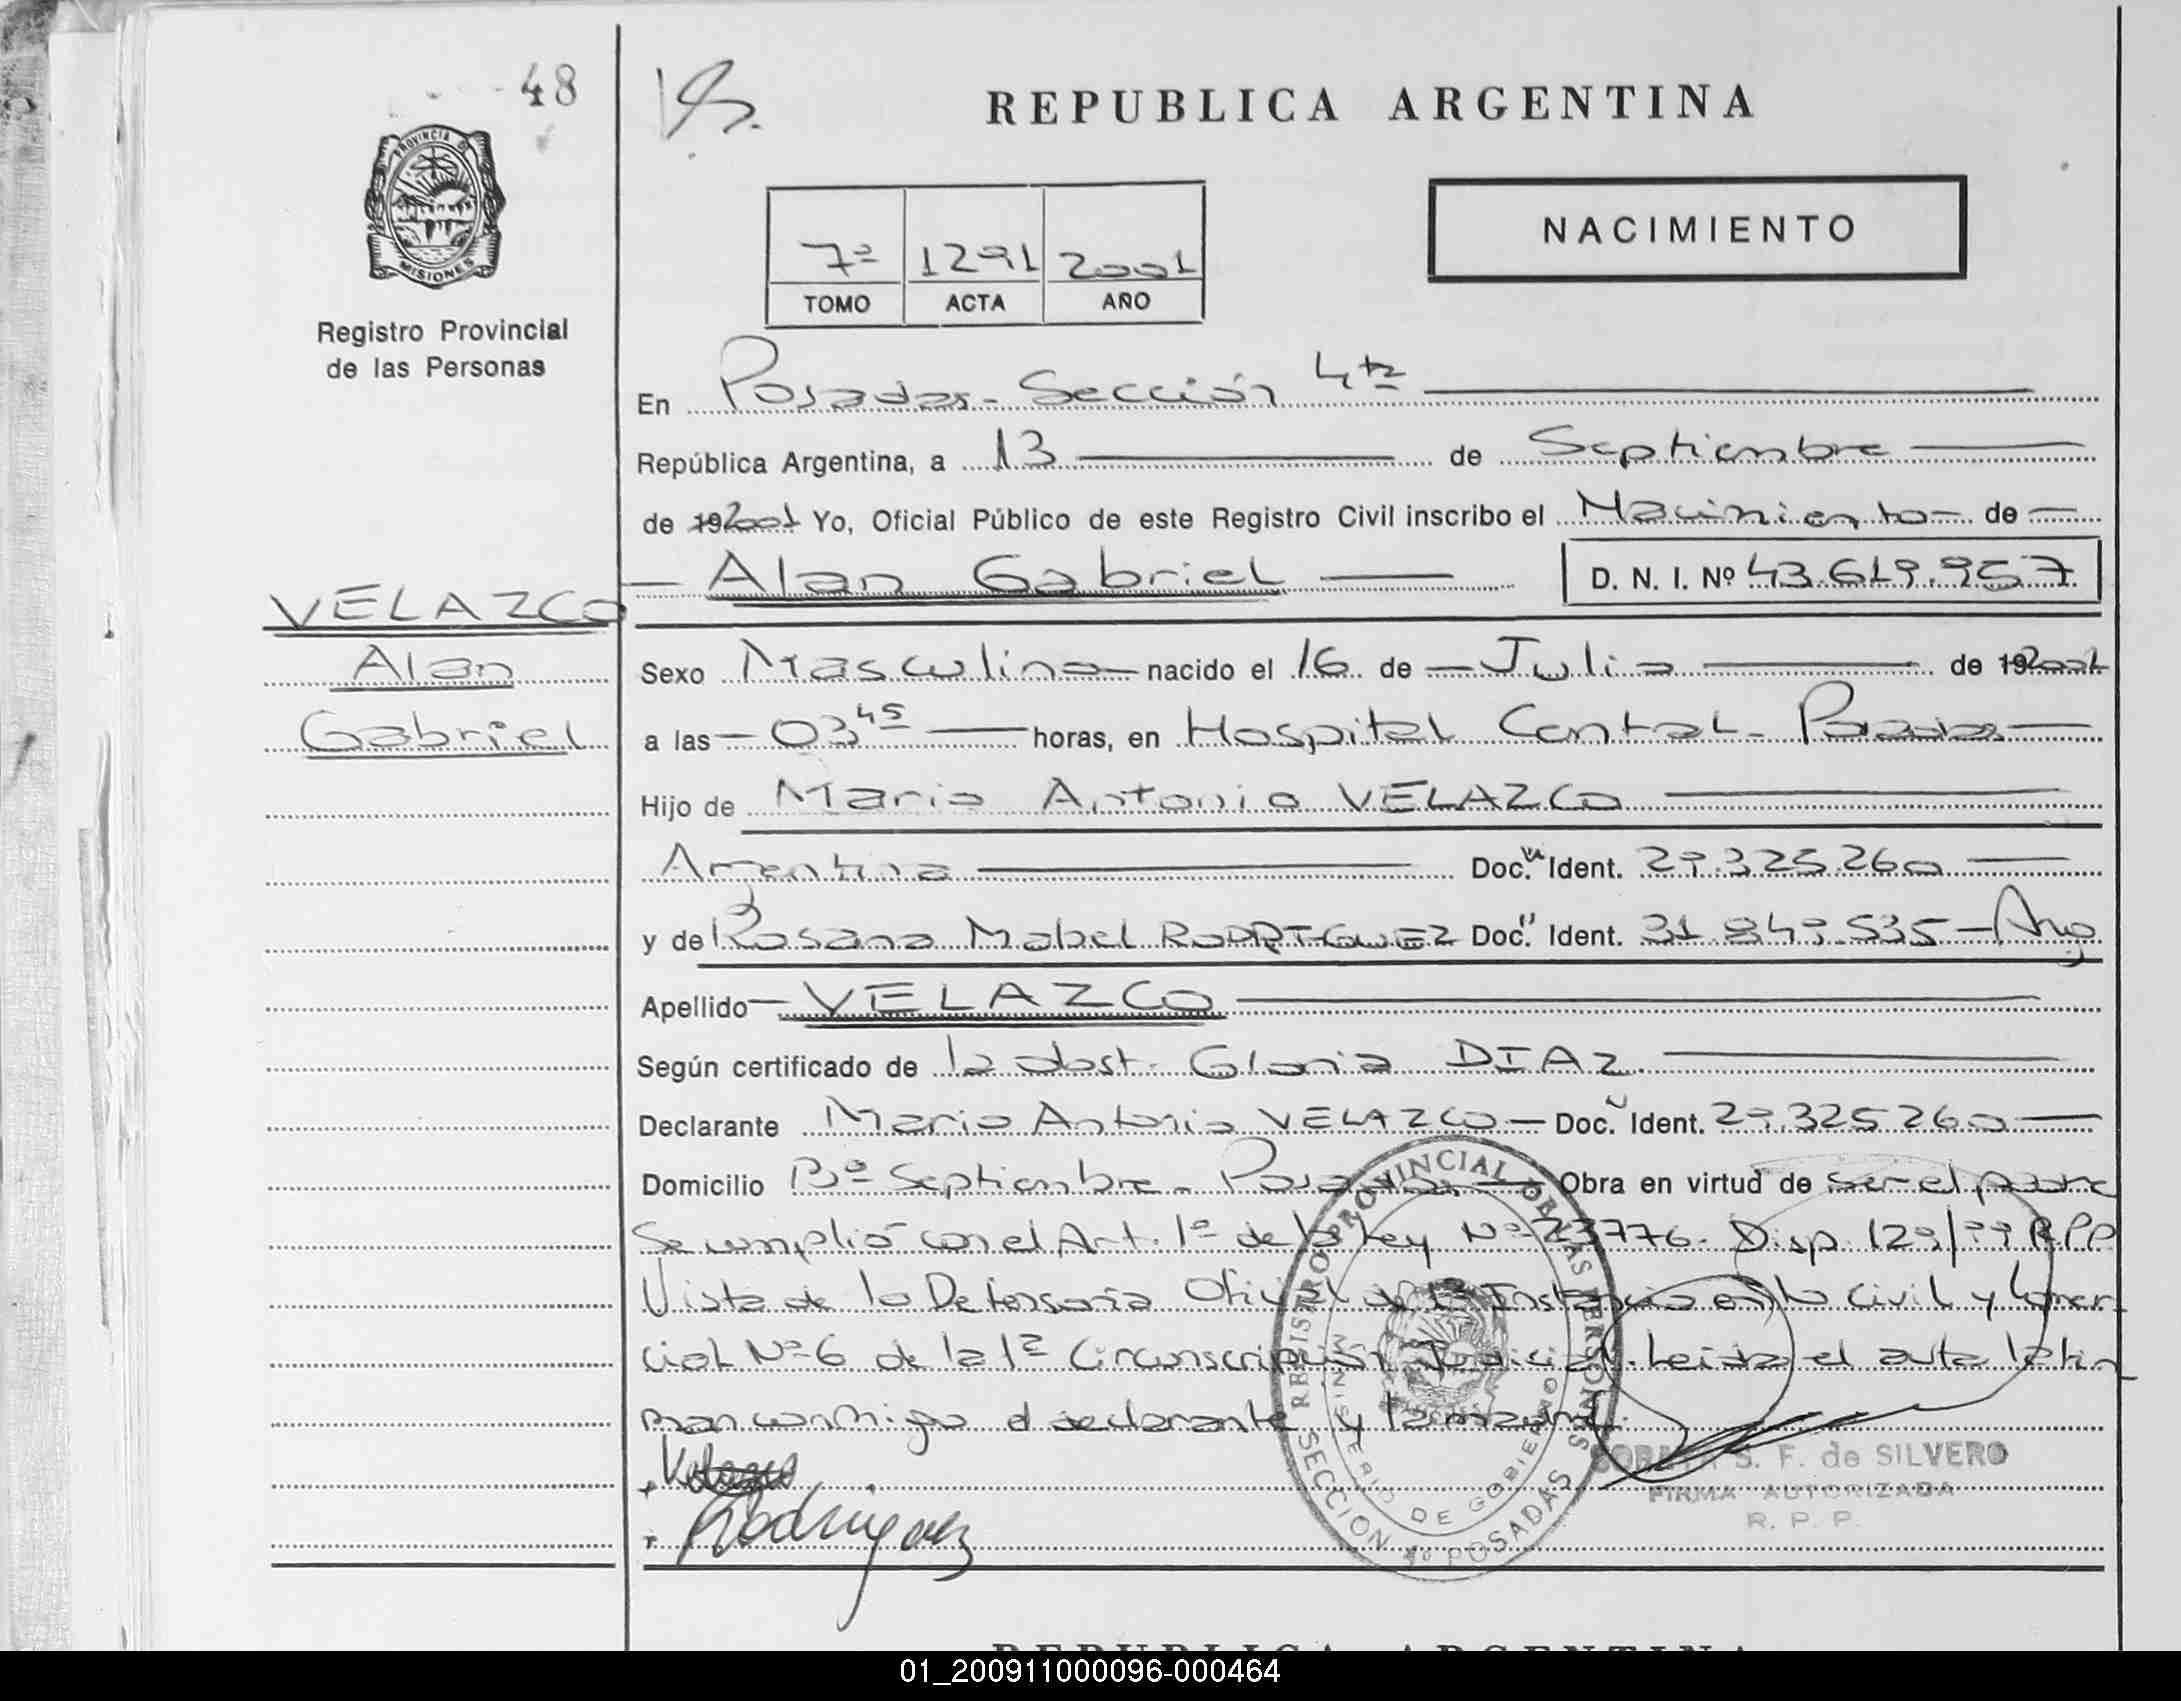 48
REPUBLICA ARGENTINA
PROVINCIA DE
MISIONES
Registro Provincial
de las Personas
NACIMIENTO
7º 1291 2001
TOMO ACTA AÑO
En Posadas - Sección 4ta
República Argentina, a 13 de Septiembre
de 192001 Yo, Oficial Público de este Registro Civil inscribo el Nacimiento de
Alan Gabriel D. N. I. Nº 43.619.957
VELAZCO
Alan
Gabriel
Sexo Masculino nacido el 16 de Julio de 192001
a las 03 45 horas, en Hospital Central - Posadas
Hijo de Mario Antonio VELAZCO
Argentina Doc. Ident. 29.325.260
y de Rosana Mabel RODRIGUEZ Doc. Ident. 31.849.535 - Arg
Apellido VELAZCO
Según certificado de la obst. Gloria DIAZ
Declarante Mario Antonio VELAZCO - Doc. Ident. 29.325.260
Domicilio Bº Septiembre - Posadas Obra en virtud de ser el padre
Se cumplió con el Art. 1º de la Ley Nº 23776 - Disp. 129/99 RPP
Vista de la Defensoria Oficial de 1ª Instancia en lo Civil y Comer
cial Nº 6 de la 1ª Circunscripción Judicial. Leida el acta la fir
man conmigo el declarante y la madre.
Rodriguez
REGISTRO PROVINCIAL DE LAS PERSONAS
MINISTERIO DE GOBIERNO
SECCION 4º POSADAS
S. F. de SILVERO
FIRMA AUTORIZADA
R. P. P.
REPUBLICA ARGENTINA
01_200911000096-000464